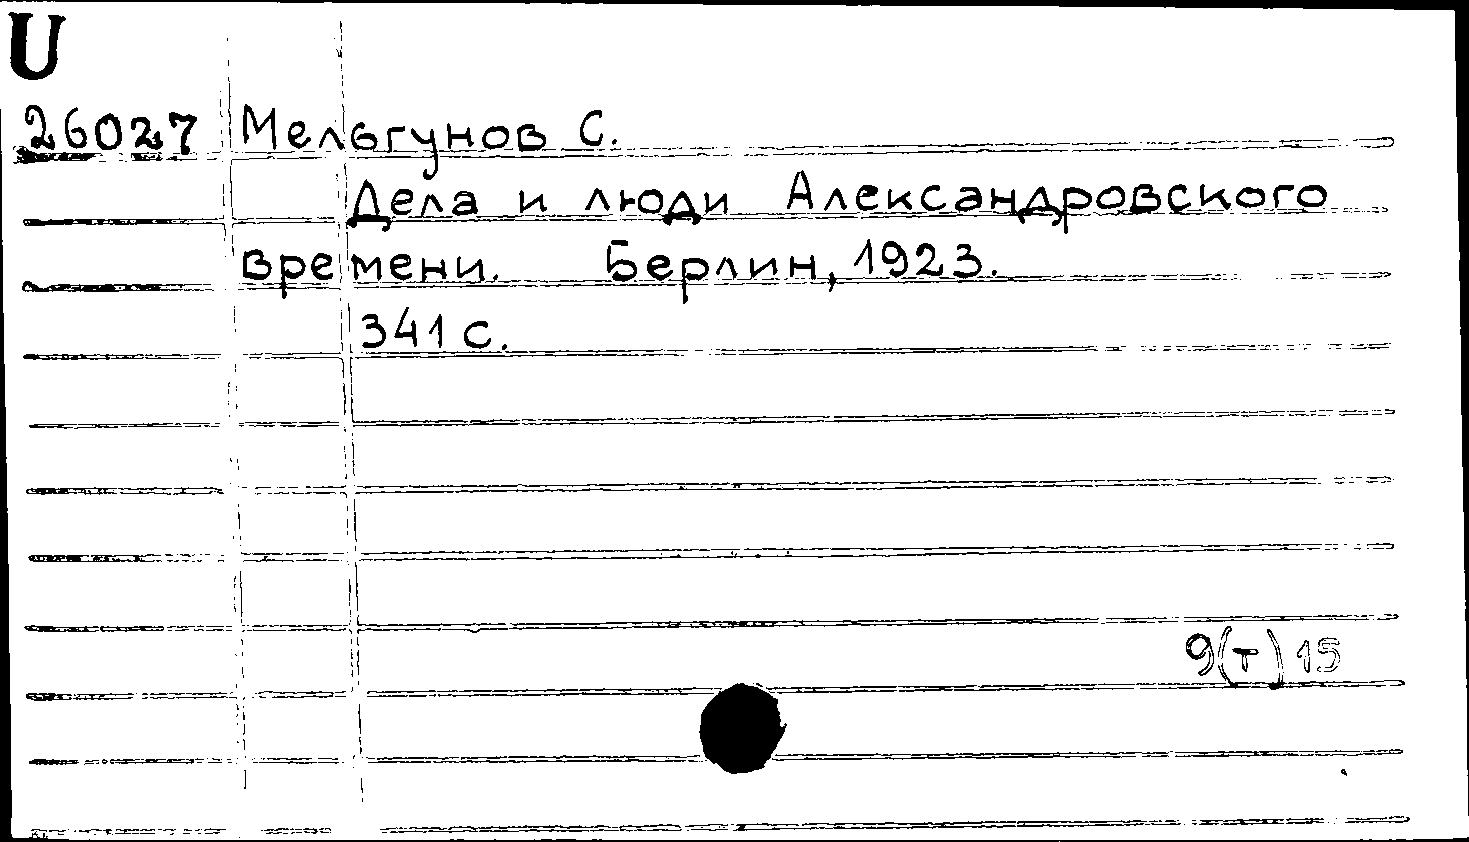 U
26027 Мельгунов С.
Дела и люди Александровского
времени. Берлин, 1923.
341 с.
9(т)15